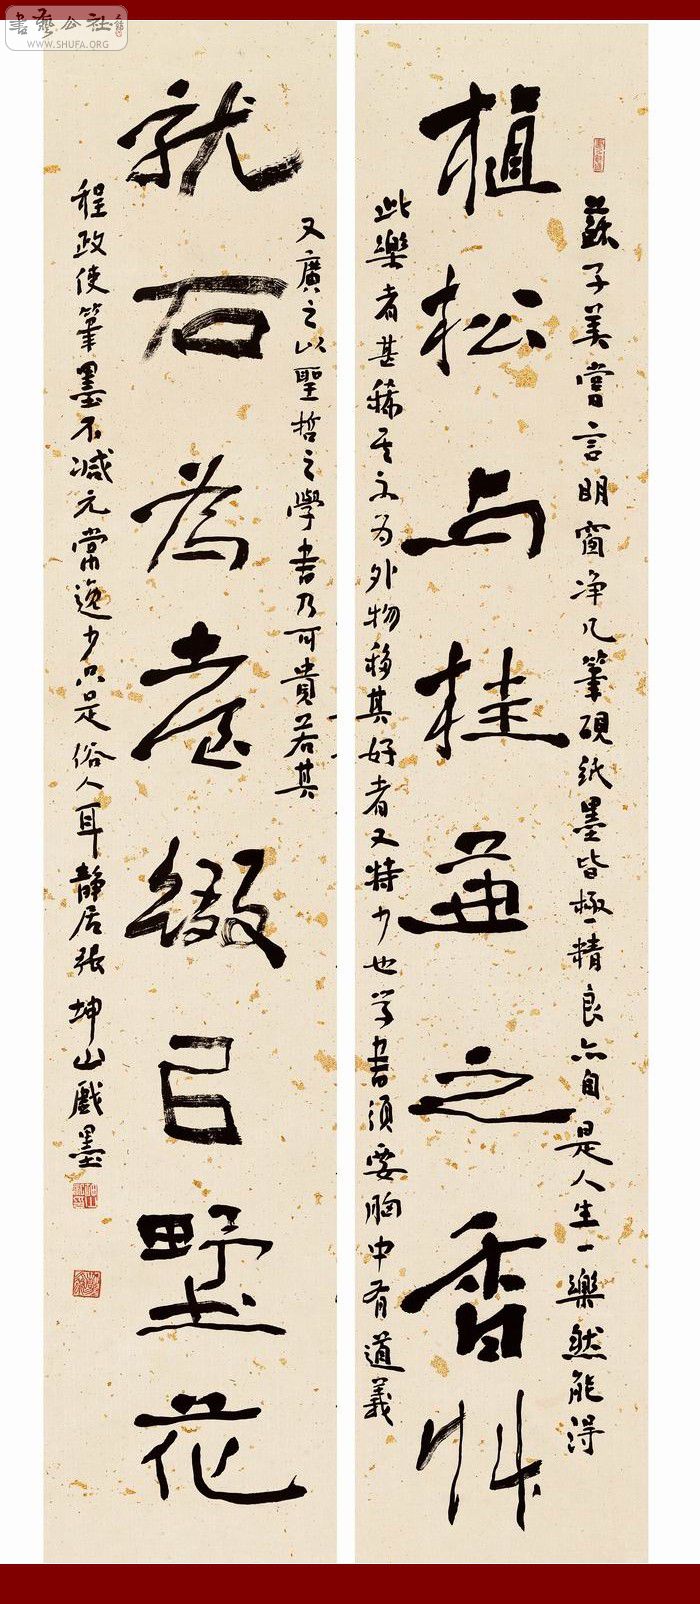 書藝公社
WWW.SHUFA.ORG
蘇子美嘗言明窗净几筆硯紙墨皆極精良亦自是人生一樂然能得
植松与桂兼之香艸
此樂者甚稀其不为外物移其好者又特少也学書須要胸中有道義
又廣之以聖哲之學書乃可貴若其
就石為臺綴㠯野花
程政使筆墨不減元常逸少只是俗人耳靜居張坤山戲墨